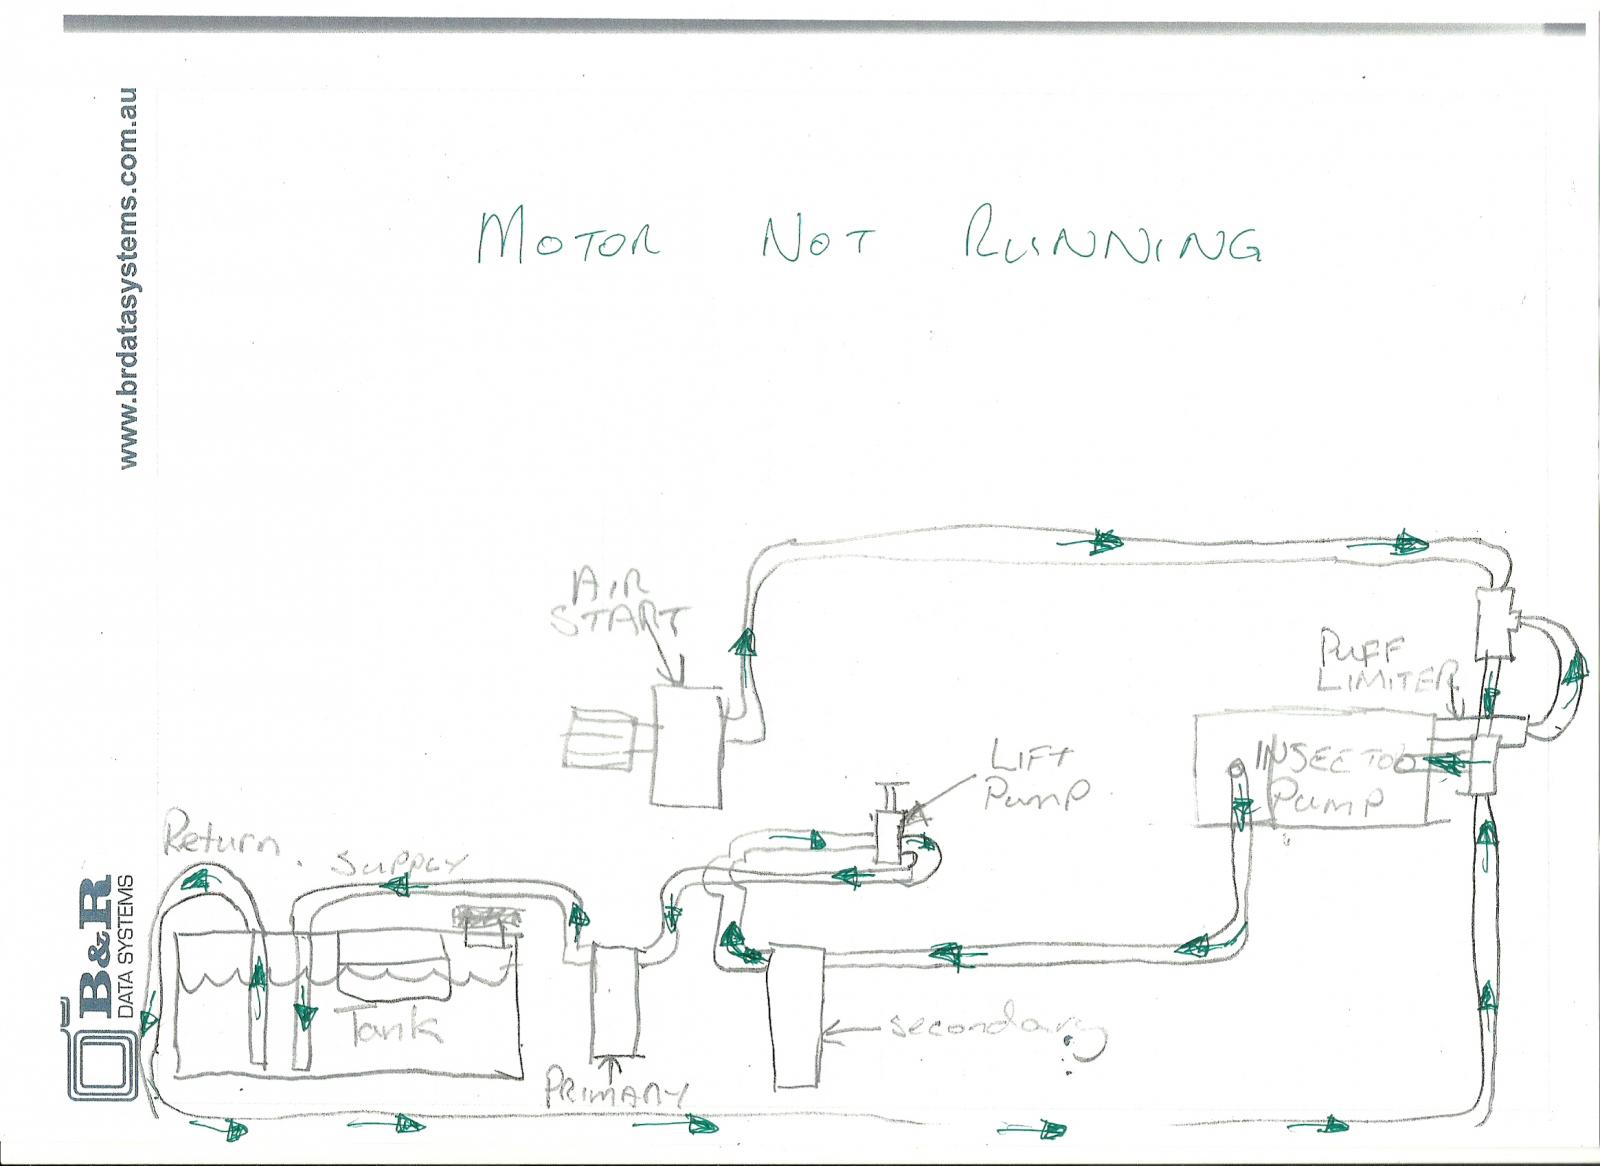 www.brdatasystems.com.au
MOTOR NOT RUNNING
AIR
START
PUFF
LIMITER
LIFT
Pump
INJECTOR
PUMP
Return
SUPPLY
Tank
PRIMARY
secondary
B&R
DATA SYSTEMS